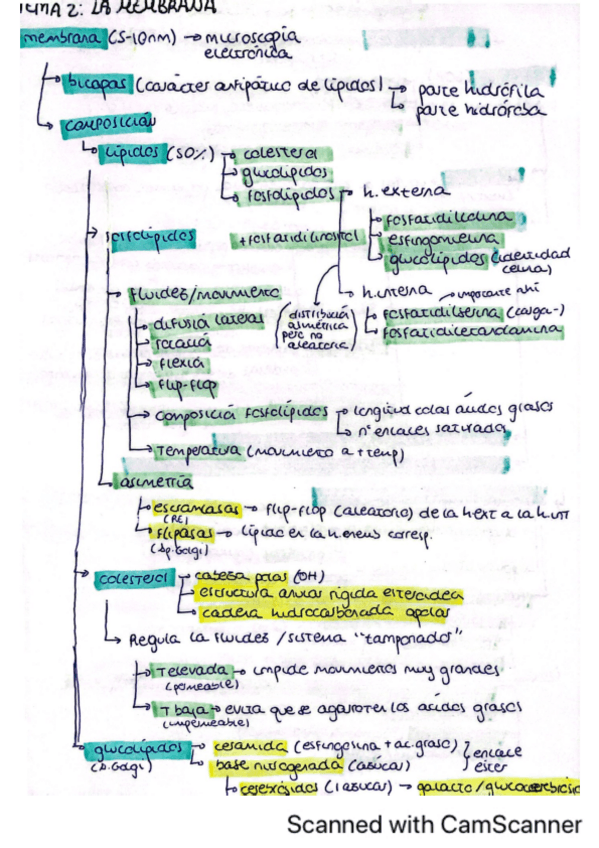 TEMA 2: LA MEMBRANA
membrana (5-10nm) → microscopia
electrónica
bicapas (carácter antipático de lípidos) → parte hidrófila
parte hidrófoba
composición
lípidos (50%) → colesterol
glucolípidos
fosfolípidos → h. externa
fosfatidilcolina
fosfolípidos + fosfatidilinositol
esfingomielina
glucolípidos (identidad
celular)
fluidez/movimiento
h. interna → importante
(distribución
asimétrica
pero no
aleatoria)
fosfatidilserina (carga -)
fosfatidiletanolamina
difusió lateral
rotació
flexió
flip-flop
composició fosfolípidos → longitud colas ácidos grasos
nº enlaces saturados
Temperatura (movimiento a + temp)
asimetría
escramblasas → flip-flop (aleatorio) de la h ext a la h int
(RE)
flipasas → lípido en la h correcta corresp.
(ap. Golgi)
colesterol → cabeza polar (OH)
estructura anular rígida esteroidea
cadena hidrocarbonada apolar
Regula la fluidez / sistema "tamponado"
T elevada → impide movimientos muy grandes
(permeable)
T baja → evita que se agarroten los ácidos grasos
(impermeable)
glucolípidos → ceramida (esfingosina + ac. graso)
(a. Golgi)
base nitrogenada (azúcar)
} enlace
ester
cerebrósidos (1 azúcar) → galacto/glucocerebrósido
Scanned with CamScanner